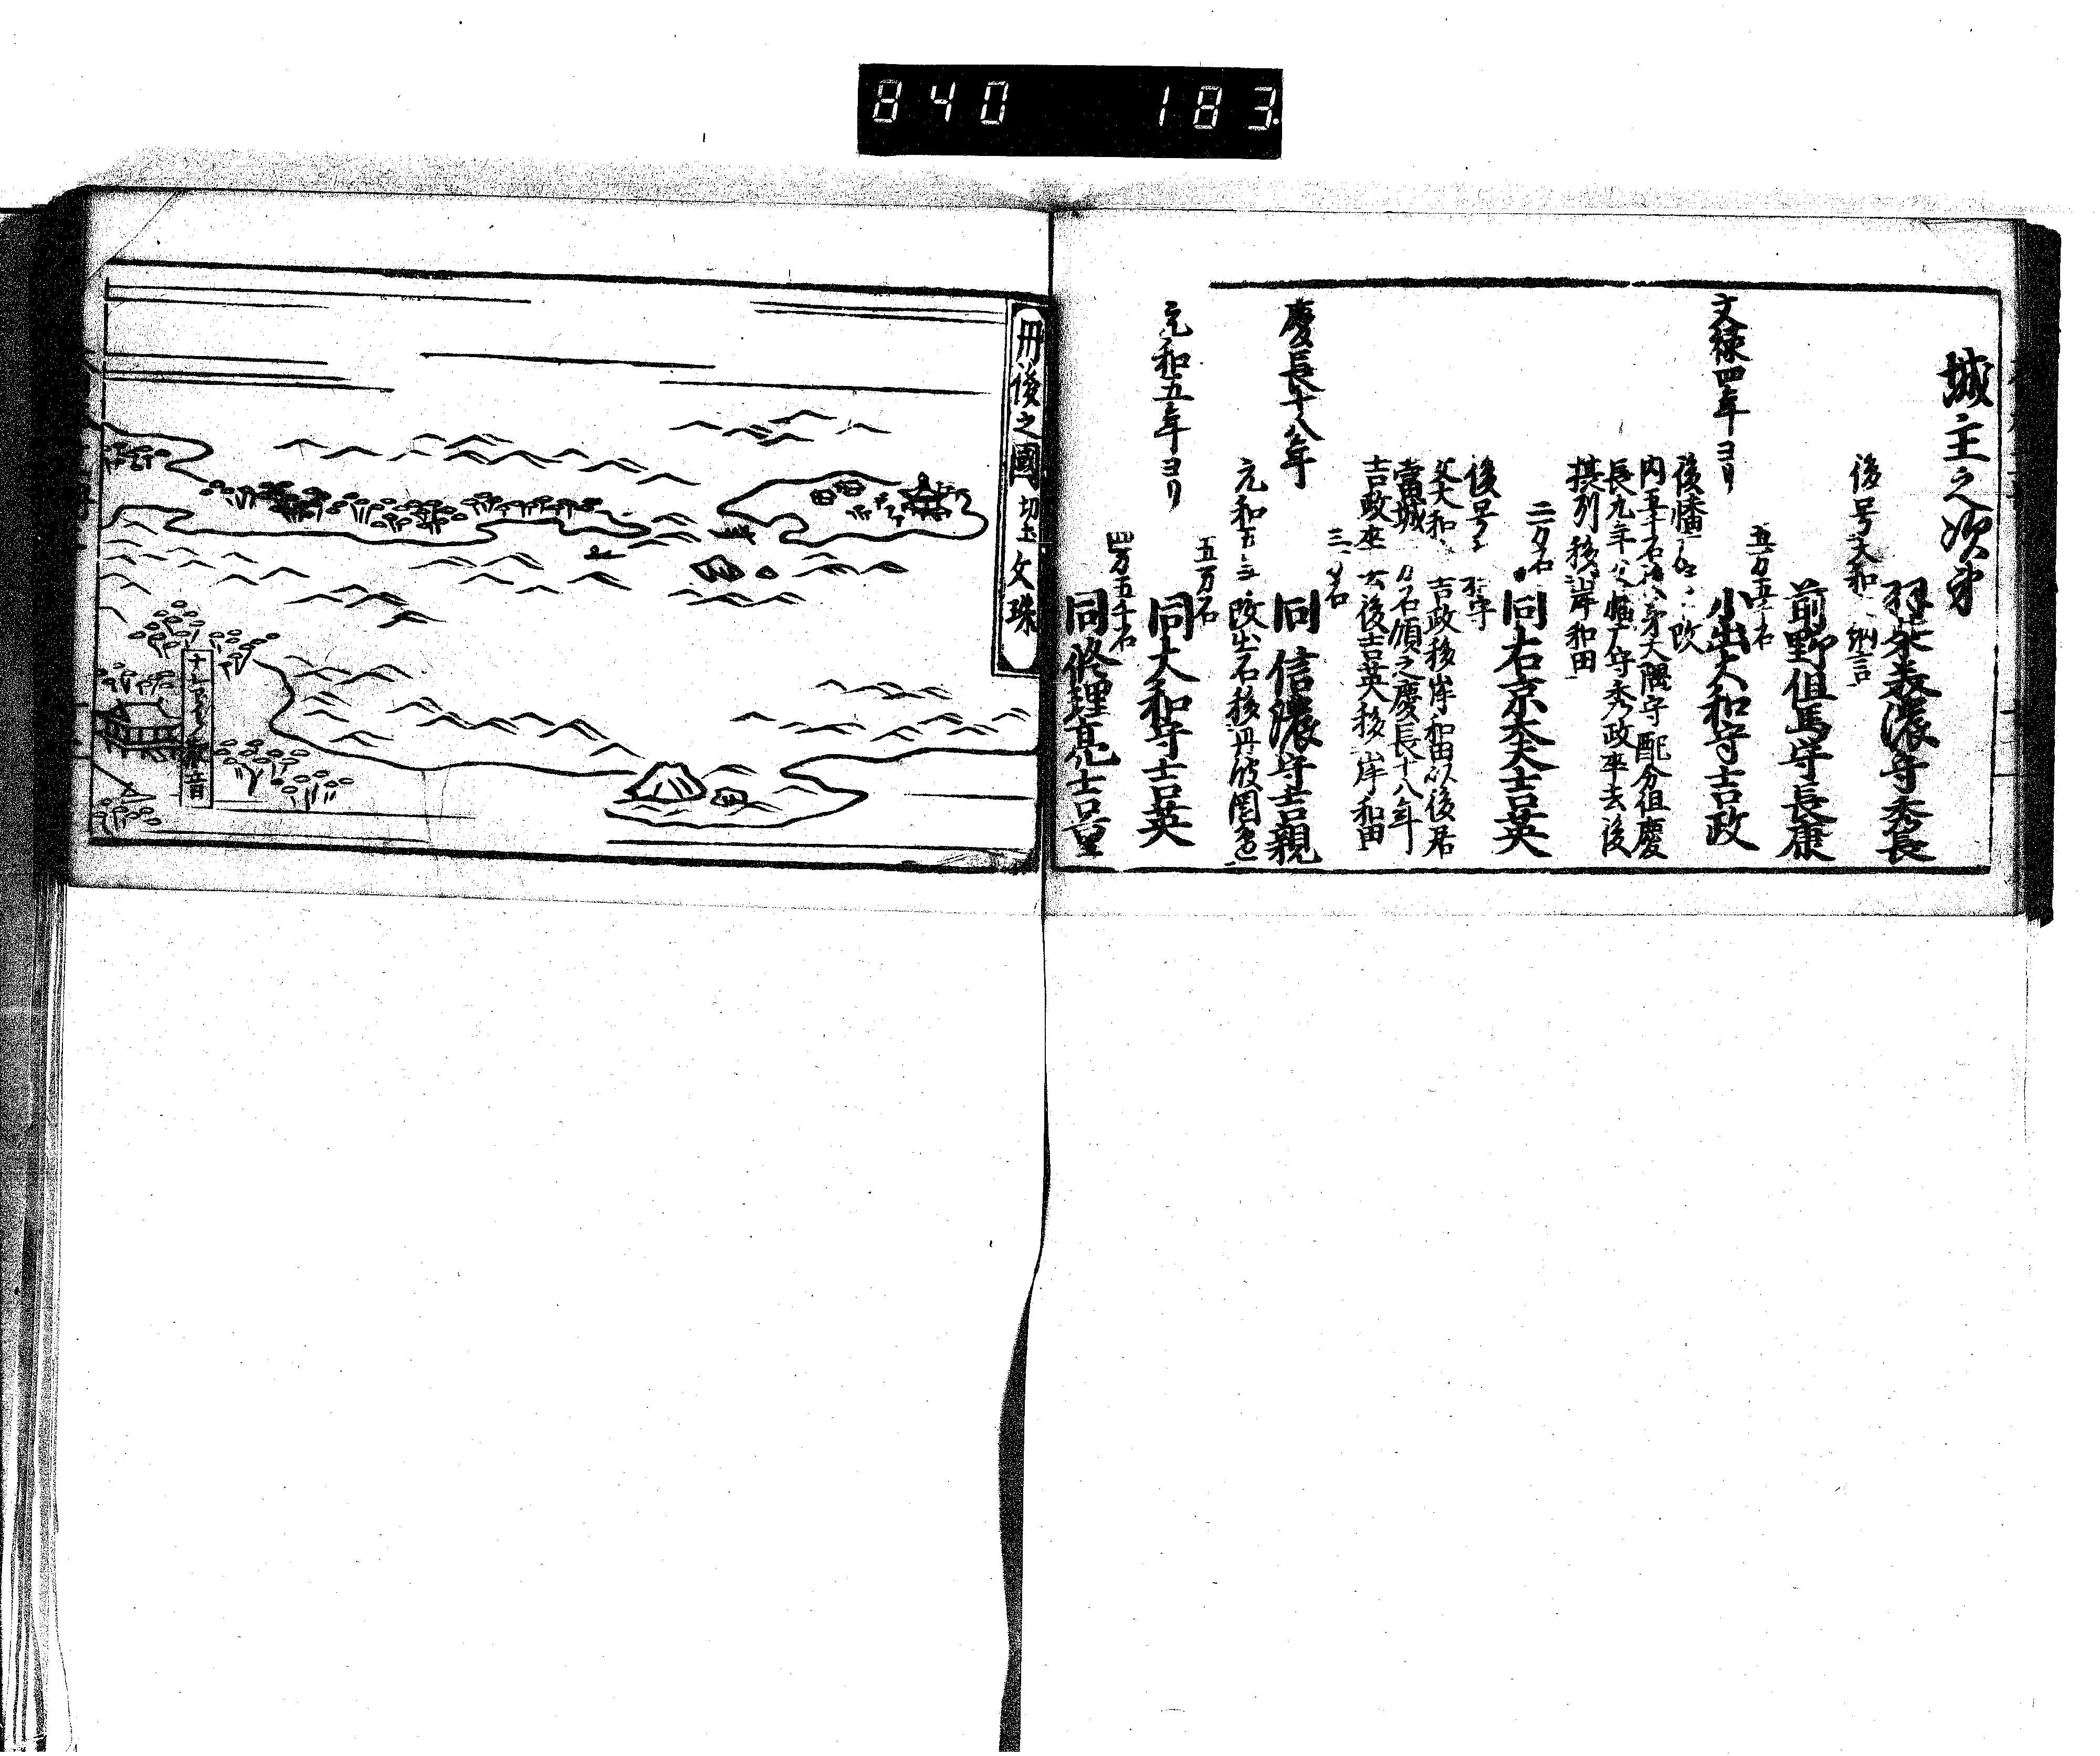 840 183
城主之次第
羽柴美濃守秀長
後号大和 納言
前野但馬守長康
五万五千石
文禄四年ヨリ 小出大和守吉政
後播 改
内五千石 弟大隅守配分但慶
長九年父播 守秀政卒去後
摂列移岸和田
二万石
同右京大夫吉英
後号 守
父大和 吉政移岸和田以後居
當城 万石領之慶長十八年
吉政卒去後吉英移岸和田
三万石
慶長十八年 同信濃守吉親
元和五 改出石移丹波園
五万石
元和五年ヨリ 同大和守吉英
四万五千石
同修理亮吉重
丹後之國切戸文珠
観音